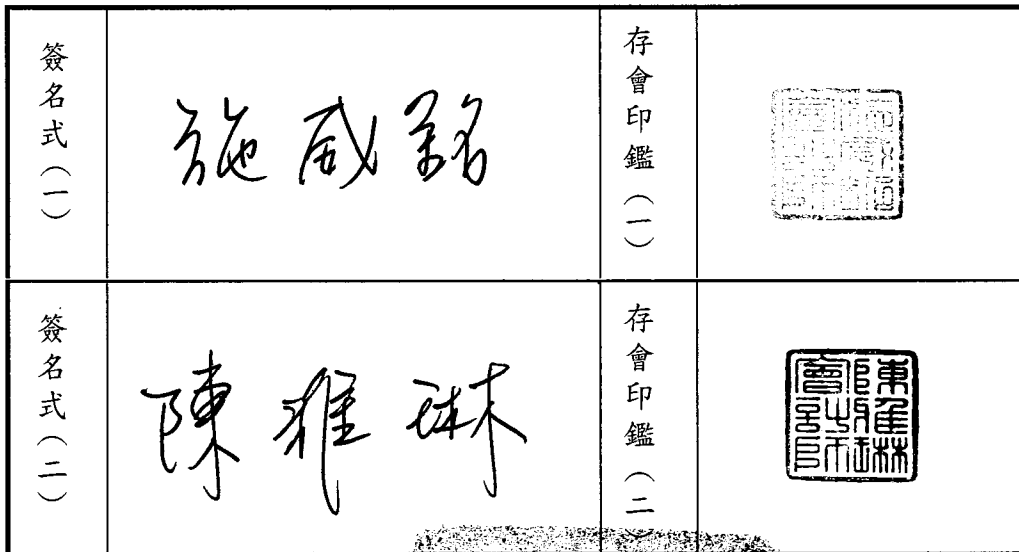 簽名式(一)
施威銘
存會印鑑(一)
簽名式(二)
陳雅琳
存會印鑑(二)